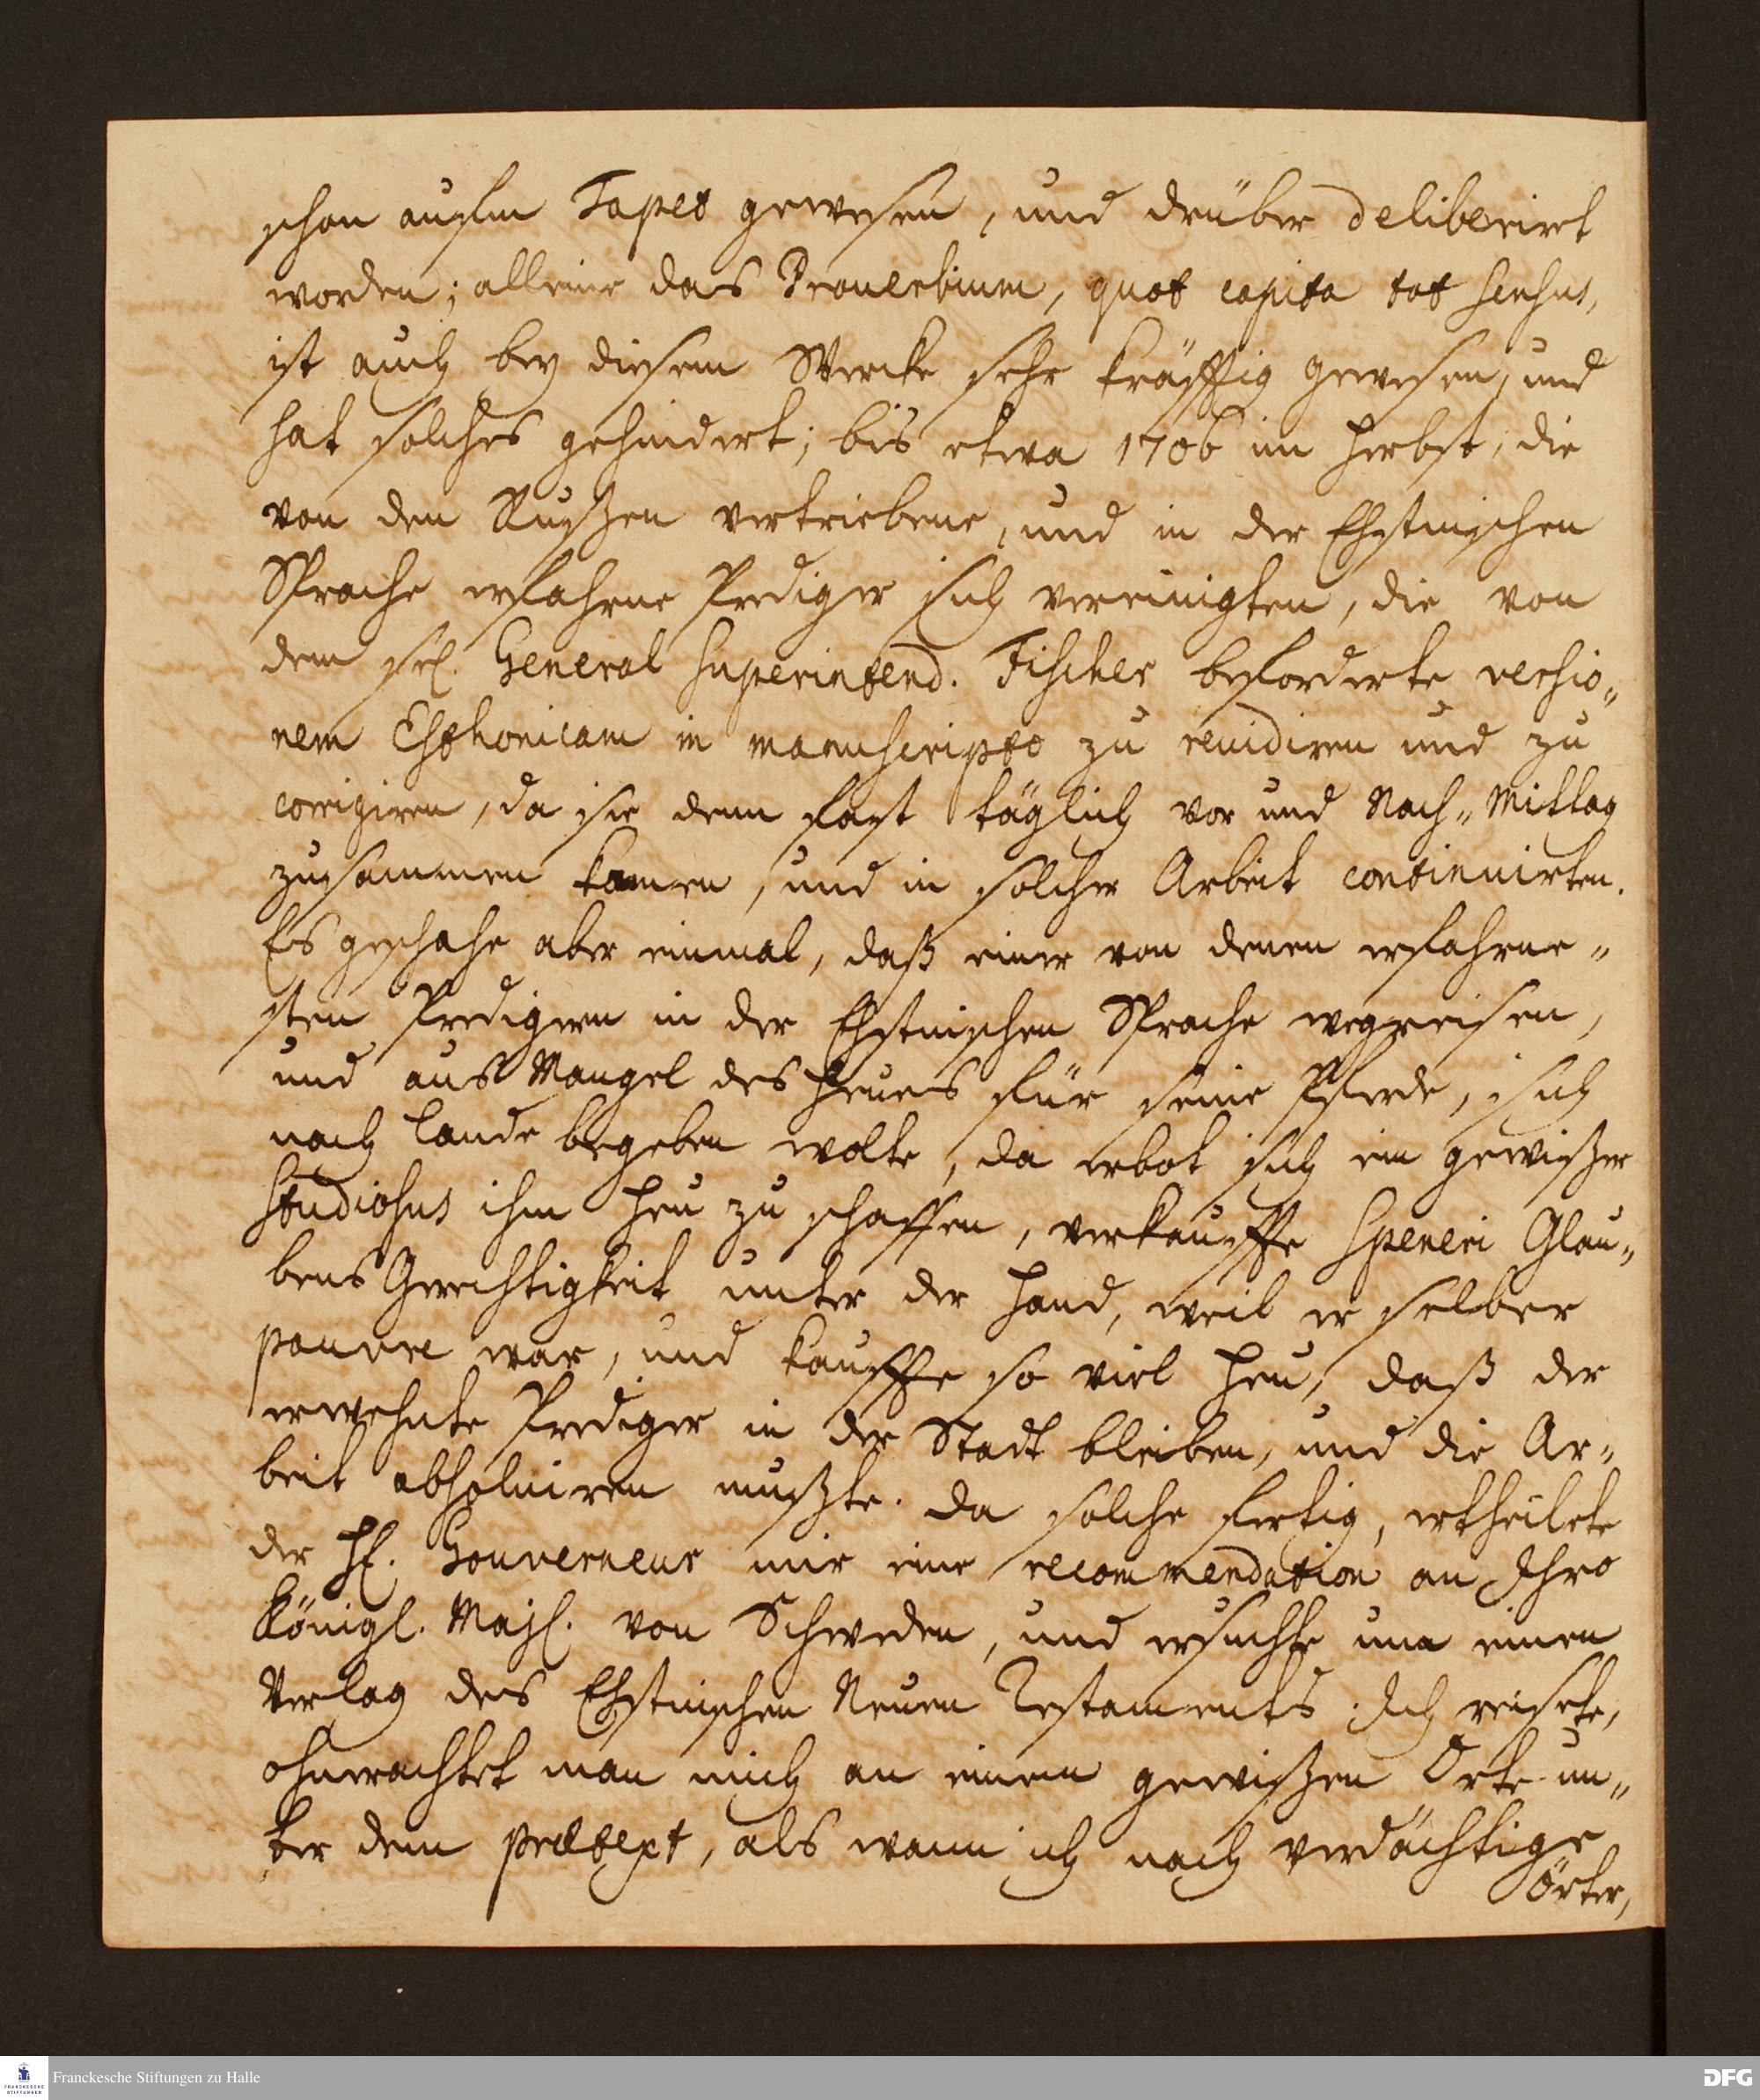 schon aufm Tapet gewesen, und drüber deliberirt
worden; alleine das Proverbium, quot capita tot sensus,
ist auch bey diesem Wercke sehr kräfftig gewesen, und
hat solches gehindert; bis etwa 1706 im Herbst, die
von den Rußen vertriebene, und in der Ehstnischen
Sprache erfahrne Prediger sich vereinigten, die von
dem sel. General Superintend. Fischer beforderte versio„
nem Esthonicam in manuscripto zu revidiren und zu
corrigiren, da sie denn fast täglich vor und Nach„Mittag
zusammen kamen, und in solcher Arbeit continuirten.
Es geschahe aber einmal, daß einer von denen erfahrne„
sten Predigern in der Ehstnischen Sprache wegreisen,
und aus Mangel des Heues für seine Pferde, sich
nach Lande begeben wolte, da erbot sich ein gewißer
Studiosus ihm Heu zu schaffen, verkauffte Speneri Glau„
bens Gerechtigkeit unter der Hand, weil er selber
pauvre war, und kauffte so viel Heu, daß der
erwehnte Prediger in der Stadt bleiben, und die Ar„
beit absolviren mußte. Da solche fertig, ertheilete
der H. Gouverneur mir eine recommendation an Ihro
Königl. Maj. von Schweden, und ersuchte um einen
Verlag des Ehstnischen Neuen Testaments. Ich reisete,
ohnerachtet man mich an einem gewißen Orte un„
ter dem prætext, als wann ich nach verdächtige
Örter,
Franckesche Stiftungen zu Halle
FRANCKESCHE
STIFTUNGEN
DFG